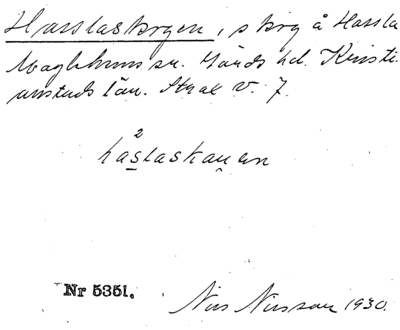 Hasslaskogen, skog å Hassla
Maglehems sn. Gärds hd. Kristi-
anstads län. Strax v. 7.
2
haslaskauen
Nr 5351.
Nils Nilsson 1930.